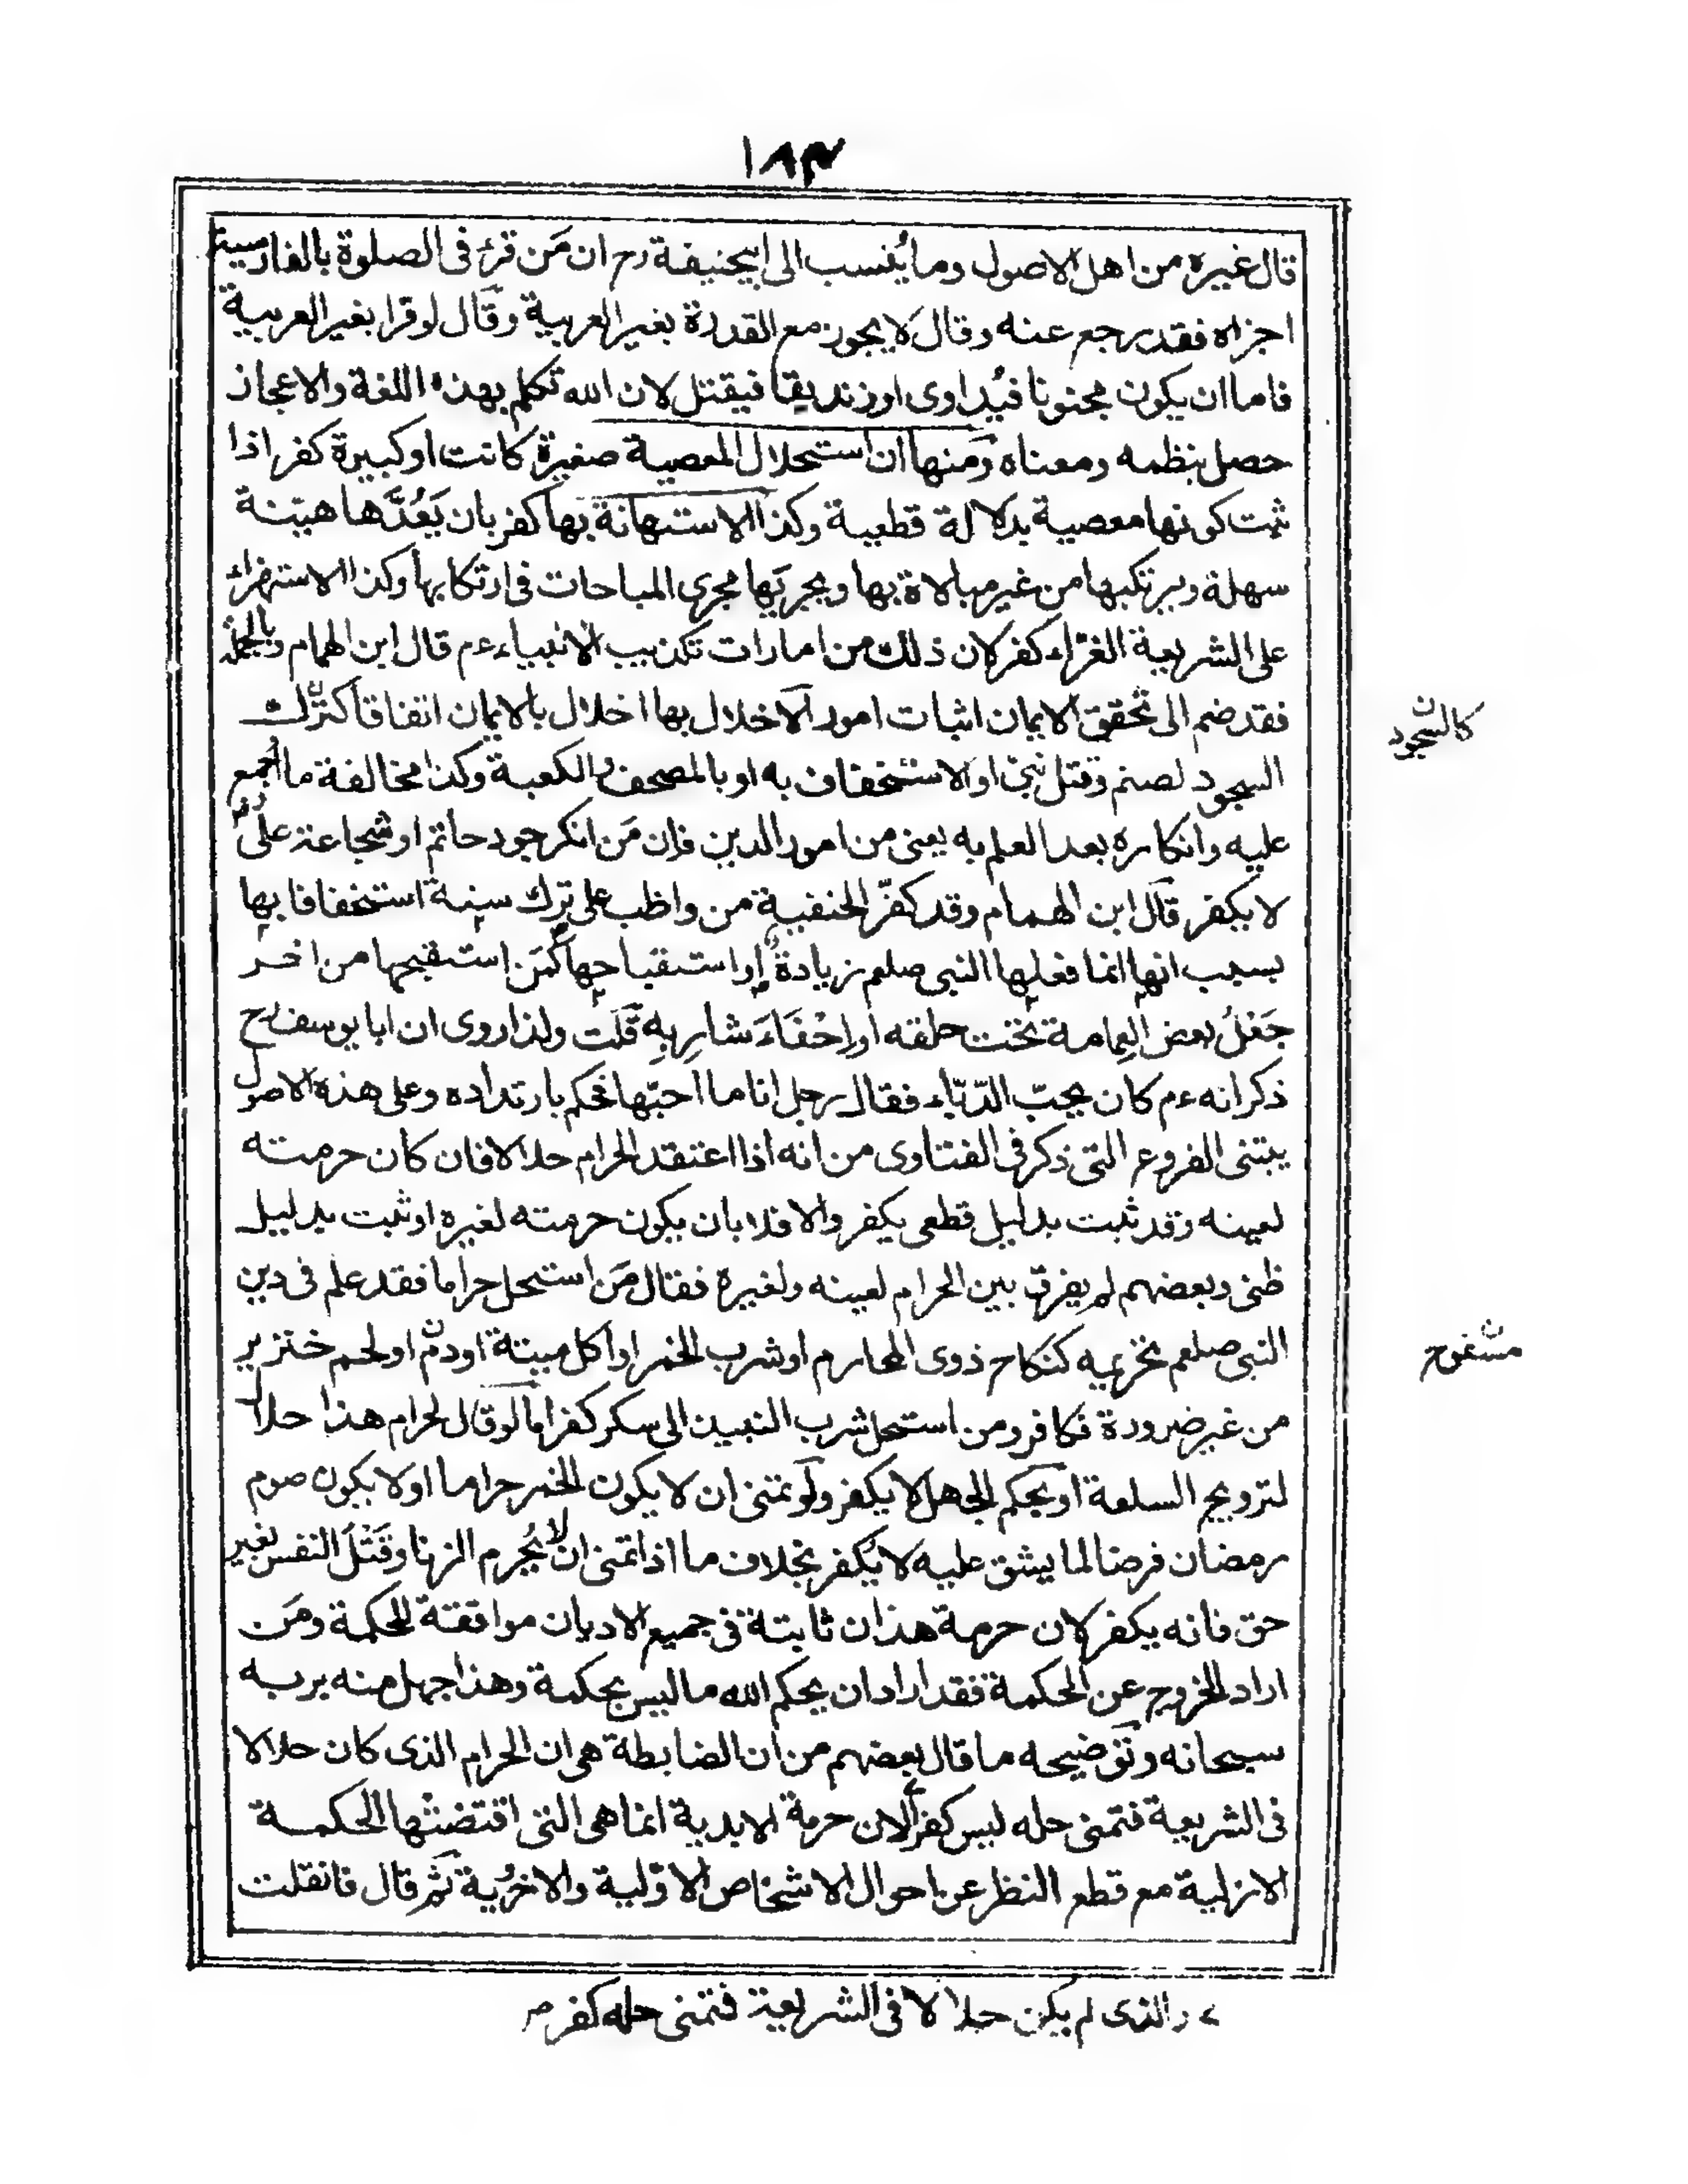 ١٨٣
قال غيره من اهل الاصول وما يُنسب الى ابيحنيفة رح ان مَن قرئ فى الصلوة بالفارسية
اجزاه فقد رجع عنه وقال لا يجوز مع القدرة بغير العربية وقال لو قرا بغير العربية
فاما ان يكون مجنونا فيُداوى او زنديقا فيقتل لان الله تكلم بهذه اللغة والاعجاز
حصل بنظمه ومعناه ومنها ان استحلال المعصية صغيرة كانت او كبيرة كفر اذا
ثبت كونها معصية بدلالة قطعية وكذا الاستهانة بها كفر بان يَعُدَّها هيّنة
سهلة ويرتكبها من غير مبالاة بها ويجريَها مجرى المباحات فى ارتكابها وكذا الاستهزاء
على الشريعة الغرّاء كفر لان ذلك من امارات تكذيب الانبياء ءم قال ابن الهمام وبالجملة
فقد ضم الى تحقق الايمان اثبات امور الاخلال بها اخلال بالايمان اتفاقا كترك
السجود لصنم وقتل نبىّ او الاستخفاف به او بالمصحف والكعبة وكذا مخالفة ما اُجمع
عليه وانكاره بعد العلم به يعنى من امور الدين فان مَن انكر جود حاتم او شجاعة علىؓ
لا يكفر قال ابن الهمام وقد كفّر الحنفية من واظب على ترك سنة استخفافا بها
بسبب انها انما فعلها النبى صلعم زيادة او استقباحها كمَن استقبحها من اخر
جَعْلُ بعض العِمامة تحت حلقه او اِحْفَاءَ شارِبِه قلت ولذا روى ان ابا يوسف رح
ذكر انه ءم كان يحبّ الدّبّاء فقال رجل انا ما احبّها فحكم بارتداده وعلى هذه الاصول
يبتنى الفروع التى ذكر فى الفتاوى من انه اذا اعتقد الحرام حلالا فان كان حرمته
لعينه وقد ثبت بدليل قطعى يكفر والا فلا بان يكون حرمته لغيره او ثبت بدليل
ظنى وبعضهم لم يفرق بين الحرام لعينه ولغيره فقال مَن استحل حراما فقد علم فى دين
النبى صلعم تحريمه كنكاح ذوى المحارم او شرب الخمر او اكل ميتة او دم او لحم خنزير
من غير ضرورة فكافر ومن استحل شرب النبيذ الى سكر كفر اما لو قال لحرام هذا حلال
لترويج السلعة او بحكم الجهل لا يكفر ولو تمنى ان لا يكون الخمر حراما او لا يكون صوم
رمضان فرضا لما يشق عليه لا يكفر بخلاف ما اذا تمنى ان لا يُحرم الزنا وقَتْلَ النفس بغير
حق فانه يكفر لان حرمة هذان ثابتة فى جميع الاديان موافقة للحكمة ومَن
اراد الخروج عن الحكمة فقد اراد ان يحكم الله ما ليس بحكمة وهذا جهل منه بربه
سبحانه وتوضيحه ما قال بعضهم من ان الضابطة هى ان الحرام الذى كان حلالا
فى الشريعة فتمنى حله ليس كفرا لان حرمة الابدية انما هى التى اقتضتها الحكمة
الازلية مع قطع النظر عن احوال الاشخاص الاوّلية والاخرُية ثم قال فان قلت
كالسجود
ن
مسفوح
ن
٢ والذى لم يكن حلالا فى الشريعة فتمنى حله كفر